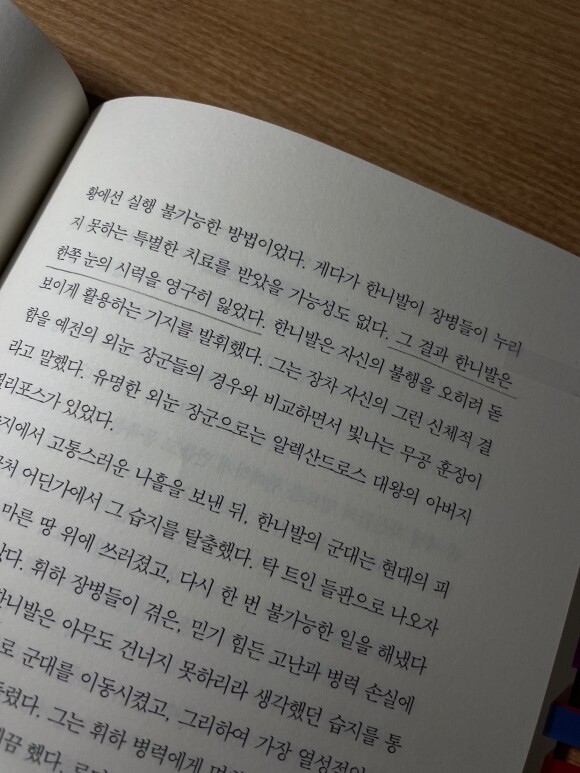 황에선 실행 불가능한 방법이었다. 게다가 한니발이 장병들이 누리
지 못하는 특별한 치료를 받았을 가능성도 없다. 그 결과 한니발은
한쪽 눈의 시력을 영구히 잃었다. 한니발은 자신의 불행을 오히려 돋
보이게 활용하는 기지를 발휘했다. 그는 장차 자신의 그런 신체적 결
함을 예전의 외눈 장군들의 경우와 비교하면서 빛나는 무공 훈장이
라고 말했다. 유명한 외눈 장군으로는 알렉산드로스 대왕의 아버지
필리포스가 있었다.
에서 고통스러운 나흘을 보낸 뒤, 한니발의 군대는 현대의 피
어딘가에서 그 습지를 탈출했다. 탁 트인 들판으로 나오자
마른 땅 위에 쓰러졌고, 다시 한 번 불가능한 일을 해냈다
휘하 장병들이 겪은, 믿기 힘든 고난과 병력 손실에
한니발은 아무도 건너지 못하리라 생각했던 습지를 통
로 군대를 이동시켰고, 그리하여 가장 열성적인
그는 휘하 병력에게
했다.